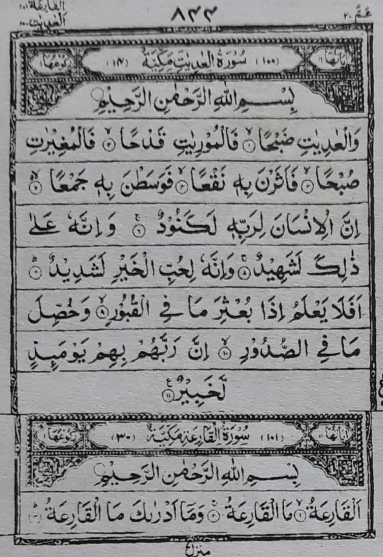 القارعة ١٠١
العٰدیٰت ١٠٠
٨٤٤
عمّ ٣٠
اٰیَاتُهَا ١١ (١٠٠) سُوْرَةُ الْعٰدِیٰتِ مَكِّیَّةٌ (١٤) رُكُوْعُهَا ١
بِسْمِ اللّٰهِ الرَّحْمٰنِ الرَّحِیْمِ
وَالْعٰدِیٰتِ ضَبْحًا ۙ﴿١﴾ فَالْمُوْرِیٰتِ قَدْحًا ۙ﴿٢﴾ فَالْمُغِیْرٰتِ
صُبْحًا ۙ﴿٣﴾ فَاَثَرْنَ بِهٖ نَقْعًا ۙ﴿٤﴾ فَوَسَطْنَ بِهٖ جَمْعًا ۙ﴿٥﴾
اِنَّ الْاِنْسَانَ لِرَبِّهٖ لَكَنُوْدٌ ۚ﴿٦﴾ وَاِنَّهٗ عَلٰی
ذٰلِكَ لَشَهِیْدٌ ۚ﴿٧﴾ وَاِنَّهٗ لِحُبِّ الْخَیْرِ لَشَدِیْدٌ ؕ﴿٨﴾
اَفَلَا یَعْلَمُ اِذَا بُعْثِرَ مَا فِی الْقُبُوْرِ ۙ﴿٩﴾ وَحُصِّلَ
مَا فِی الصُّدُوْرِ ۙ﴿١٠﴾ اِنَّ رَبَّهُمْ بِهِمْ یَوْمَىِٕذٍ
لَّخَبِیْرٌ ﴿١١﴾ ع
اٰیَاتُهَا ١١ (١٠١) سُوْرَةُ الْقَارِعَةِ مَكِّیَّةٌ (٣٠) رُكُوْعُهَا ١
بِسْمِ اللّٰهِ الرَّحْمٰنِ الرَّحِیْمِ
اَلْقَارِعَةُ ۙ﴿١﴾ مَا الْقَارِعَةُ ۚ﴿٢﴾ وَمَاۤ اَدْرٰىكَ مَا الْقَارِعَةُ ؕ﴿٣﴾
منزل ٧